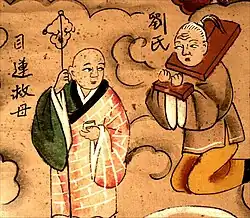 劉氏
目連救母